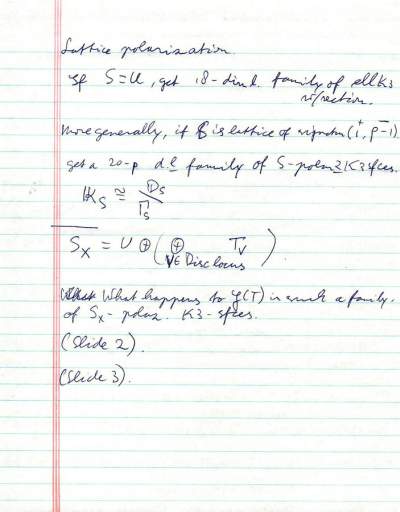 Lattice polarization.
If S = U, get 18-diml. family of ell K3
w/section.
More generally, if S is lattice of signature (1, ρ-1)
+ -
get a 20-ρ dl family of S-polarized K3 sfces.
𝕂_S ≅ D_S / Γ_S
S_X = U ⊕ ( ⊕_{v ∈ Disc locus} T_v )
What happens to y(T) in such a family.
of S_X - polaz. K3-sfces.
(Slide 2).
(Slide 3).